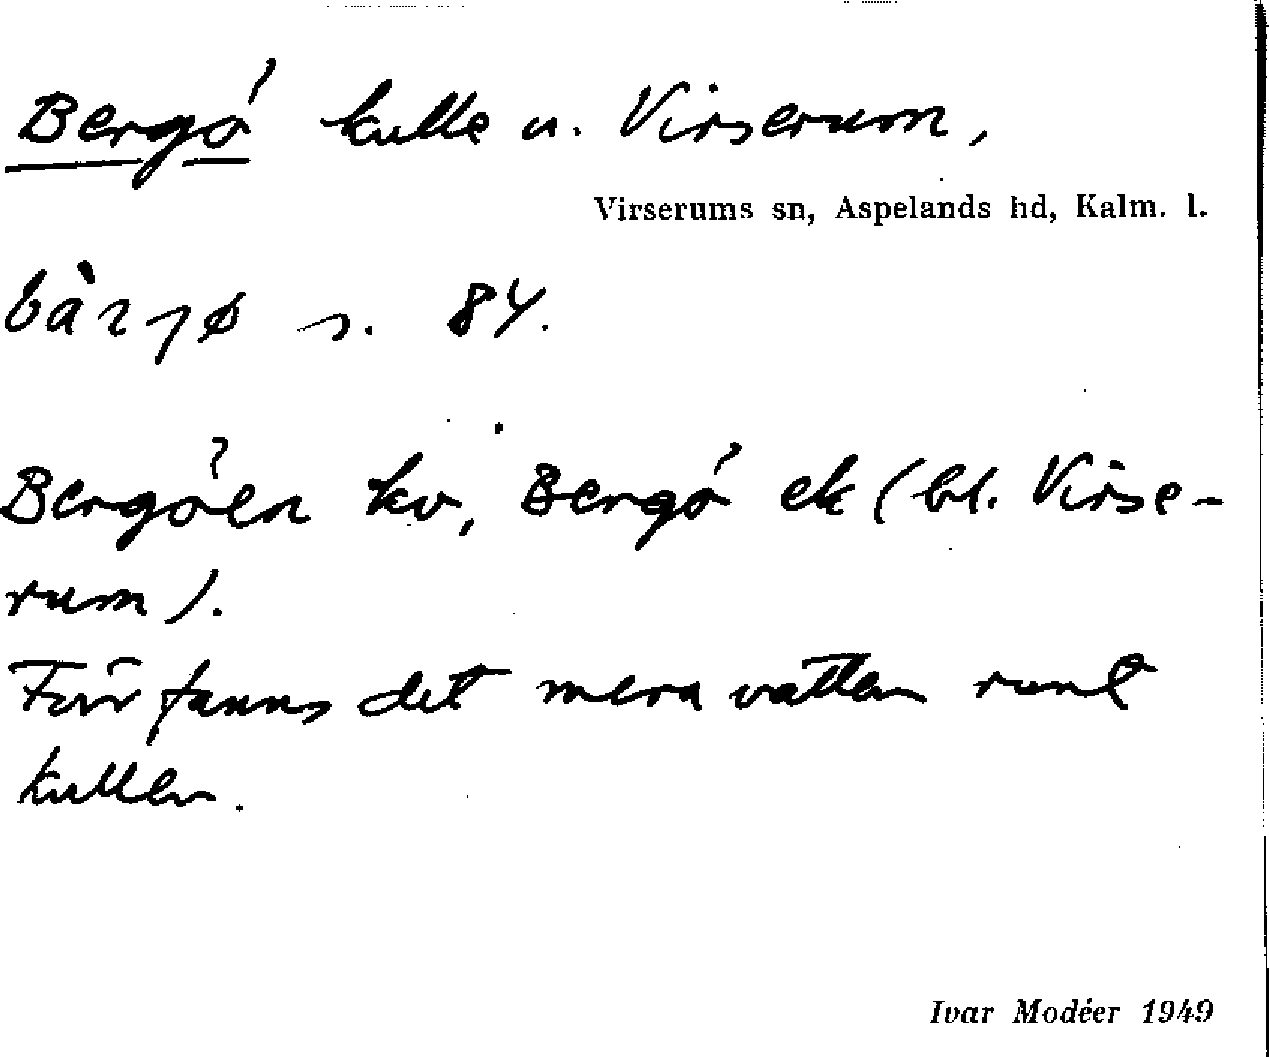 Bergö kulle u. Virserum,
Virserums sn, Aspelands hd, Kalm. l.
s. 84.
Bergöen kv, Bergö ek (bl. Virse-
rum).
Förr fanns det mera vatten runt
kullen.
Ivar Modéer 1949